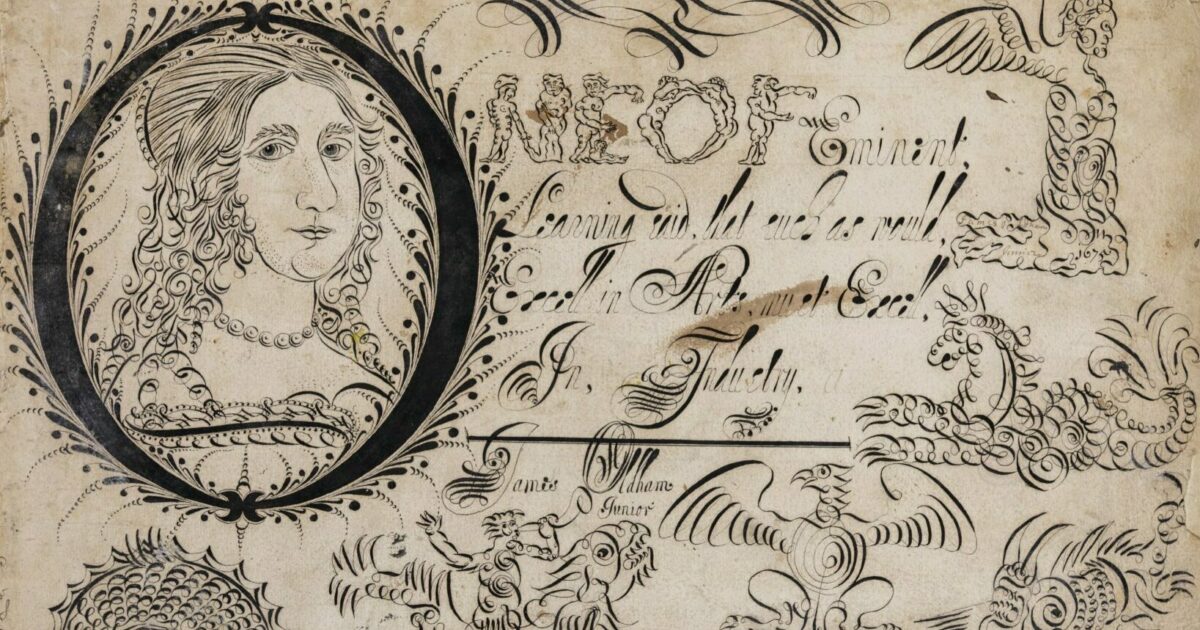 ONE OF Eminent,
Learning said, that such as would,
Excell in Arts, must Excel,
In, Industry,
James Oldham
Junior